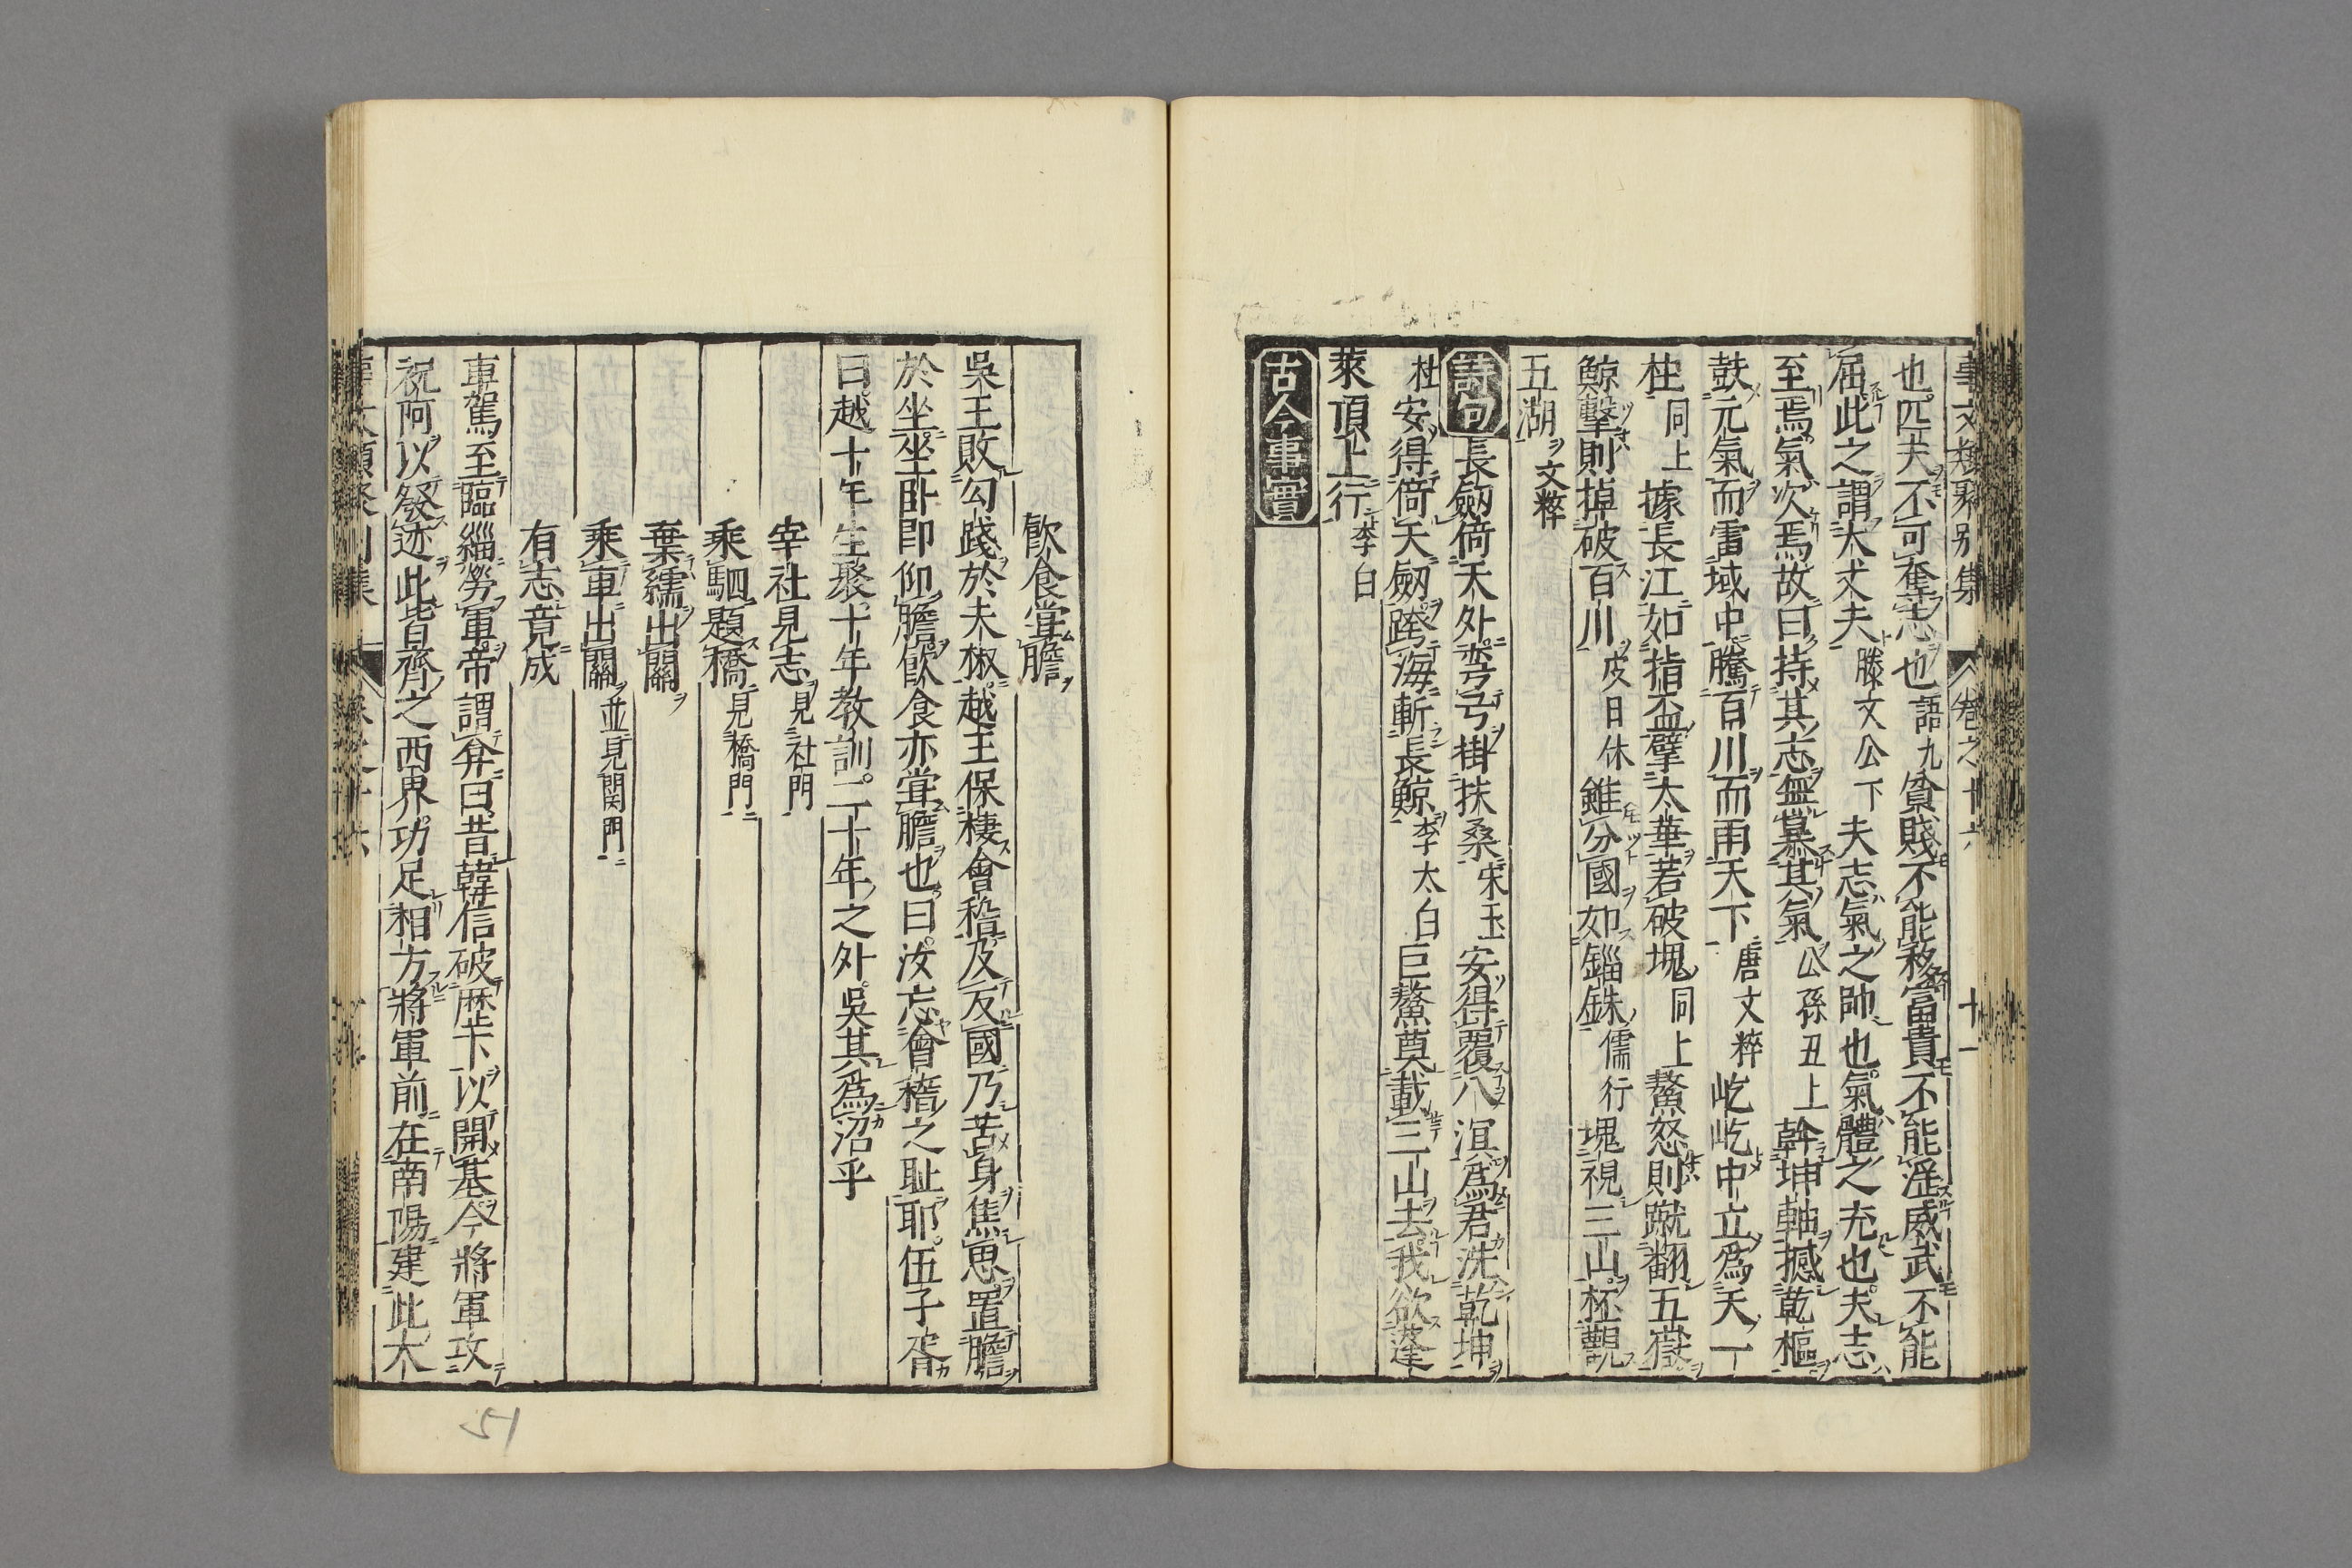 事文類聚別集 卷之十六 十一
也匹夫不可奪志也語九貧賤不能移富貴不能淫威武不能
屈此之謂大丈夫滕文公下夫志氣之帥也氣體之充也夫志
至焉氣次焉故曰持其志無暴其氣公孫丑上斡坤軸撼乾樞
鼓元氣而雷域中騰百川而雨天下唐文粹屹屹中立爲天一
柱同上據長江如指盃擘太華若破塊同上鰲怒則蹴翻五嶽
鯨擊則掉破百川皮日休錐分國如錙銖儒行塊視三山杯觀
五湖文粹
詩句長劔倚天外弯弓掛扶桑宋玉安得覆八溟爲君洗乾坤
杜安得倚天劔跨海斬長鯨李太白巨鰲莫載三山去我欲蓬
萊頂上行李白
古今事實
飮食甞膽
吳王敗勾踐於夫椒越王保棲會稽及反國乃苦身焦思置膽
於坐坐卧即仰膽飮食亦甞膽也曰汝忘會稽之耻耶伍子胥
曰越十年生聚十年教訓二十年之外吳其爲沼乎
宰社見志見社門
乘駟題橋見橋門
棄繻出關
乘車出關並見関門
有志竟成
車駕至臨緇勞軍帝謂弇曰昔韓信破歷下以開基今將軍攻
祝阿以發迹此皆齊之西界功足相方將軍前在南陽建此大